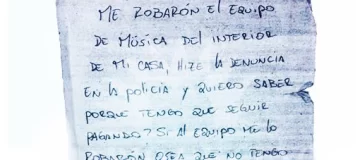 ME ROBARÓN El EQUIPO
DE MÚSICA DEl INTERIOR
DE MI CASA, HIZE lA DENUNCIA
EN lA POlICÍA Y QUIERO SABER
PORQUE TENGO QUE SEGUIR
PAGANDO? SI Al EQUIPO ME lO
ROBARÓN OSEA QUE NO TENGO